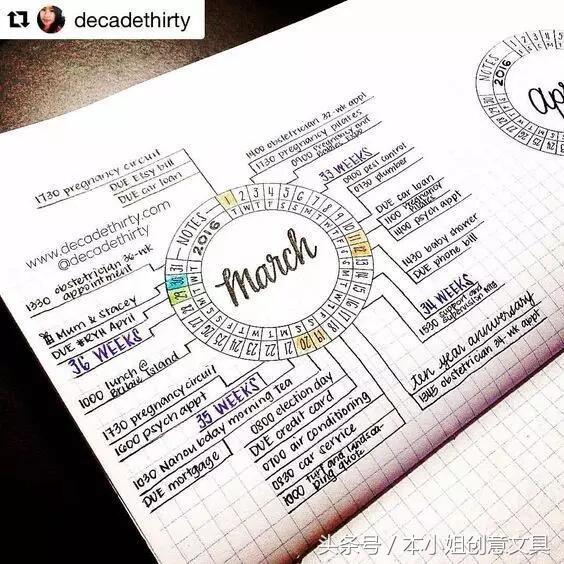 decadethirty
1400 obstetrician 32-wk appt
1730 pregnancy pilates
0900 Pregnancy and
Babies Expo
33 WEEKS
0900 pest control
0730 plumber
DUE car loan
1100 Pregnancy
1400 psych appt
1430 baby shower
DUE phone bill
34 WEEKS
1530 support and
supervision mtg
ten year anniversary
1345 obstetrician 34-wk appt
1730 pregnancy circuit
DUE Etsy bill
DUE car loan
www.decadethirty.com
@decadethirty
obstetrician 36-wk
1330 appointment
Mum & Stacey
DUE #RYH April
36 WEEKS
1000 lunch @
Bribie Island
1730 pregnancy circuit
1600 psych appt
35 WEEKS
1030 Nanou bday morning tea
DUE mortgage
0800 election day
DUE credit card
0700 air conditioning
0830 car service
1000 turf and landsca-
ping quote
NOTES
2016
March
1 2 3 4 5 6 7 8 9 10 11 12 13 14 15 16 17 18 19 20 21 22 23 24 25 26 27 28 29 30 31
T W T F S S M T W T F S S M T W T F S S M T W T F S S M T W T
NOTES
2016
Ap
头条号 / 本小姐创意文具